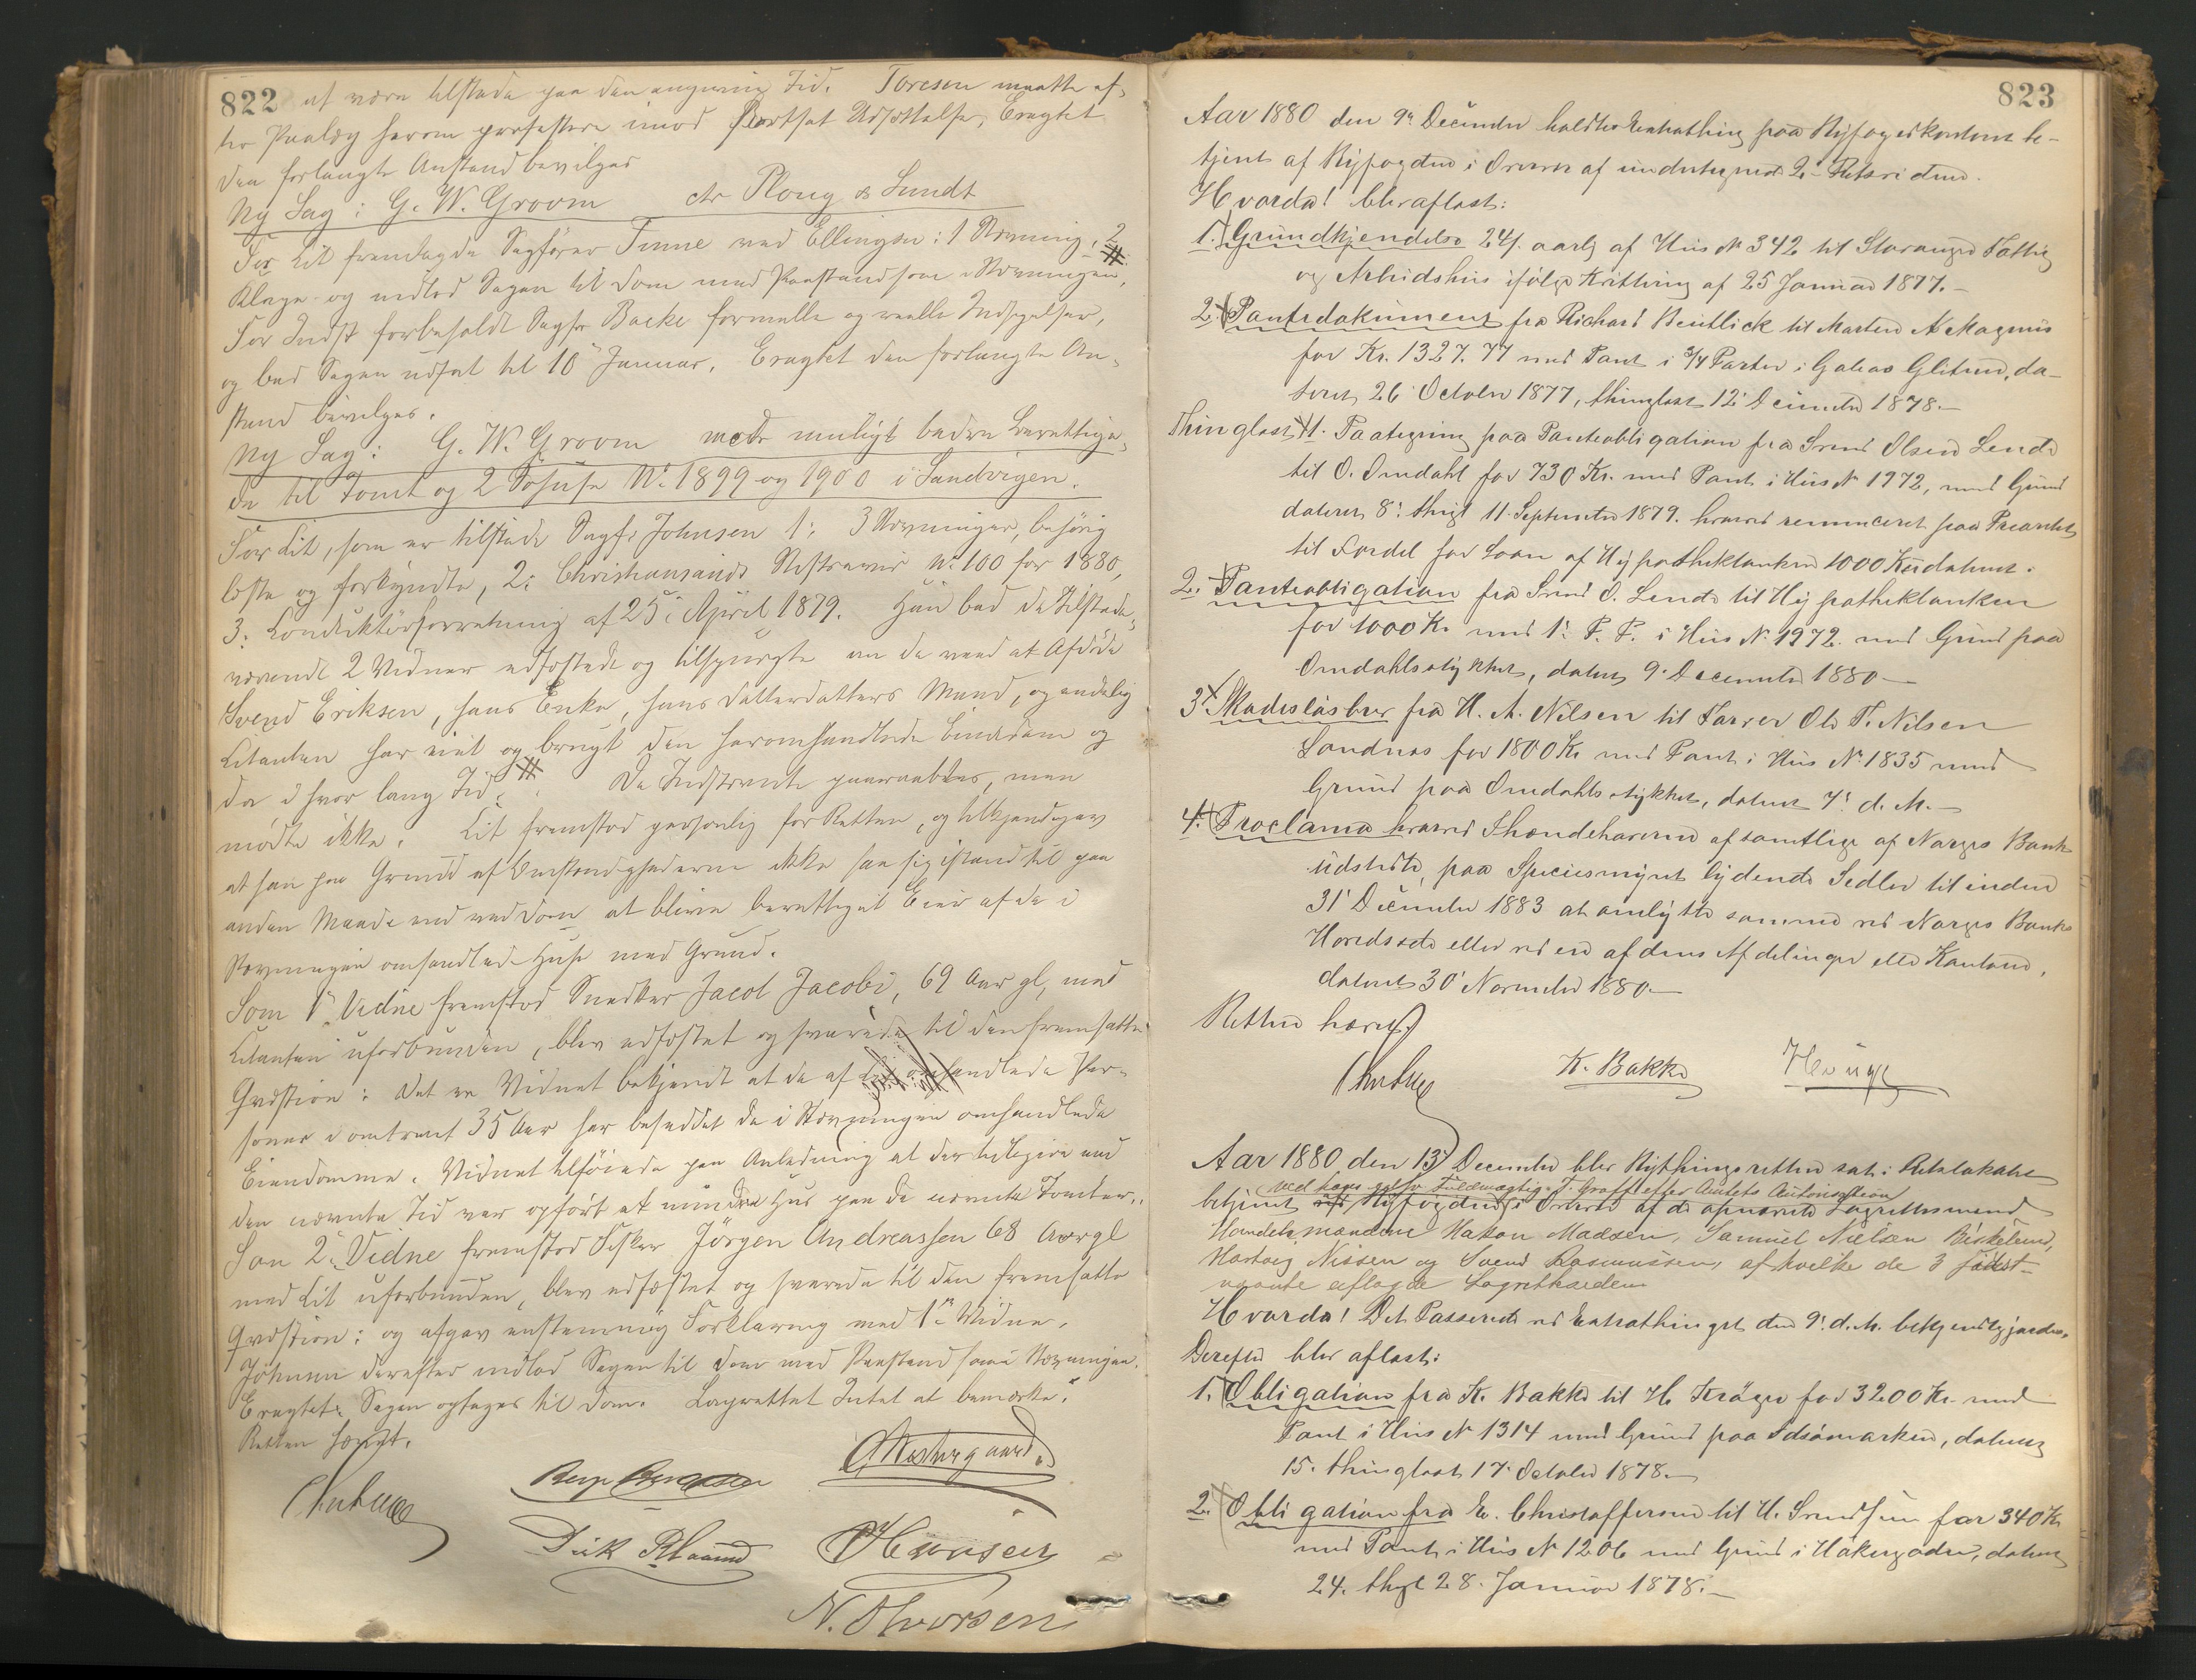 822
at være tilstede paa den angivne Tid. Toresen maatte ef-
ter Paalæg herom protestere imod fortsat Udsættelse, Eragtet
den forlangte Anstand bevilges
Ny Sag: G. W. Groom ctr Ploug & Sundt
For Cit fremlagde Sagfører Tinne ved Ellingsen: 1 Stævning, 2
Klage- og indlod Sagen til Dom med Paastand som i Stævningen,
For Indst forbeholdt Sagfr Backe formelle og reelle Indsigelser,
og bad Sagen udsat til 10 Januar. Eragtet den forlangte An-
stand bevilges.
Ny Sag: G. W. Groom mod muligt bedre Berettige-
de til Tomt og 2 Søhuse No 1899 og 1900 i Sandvigen.
For Cit, som er tilstede Sagfr Johnsen 1: 3 Stævninger, behørig
læste og forkyndte, 2: Christiansands Stiftsavis No 100 for 1880,
3: Conduktørforretning af 25 April 1879. Han bad de tilstede-
værende 2 Vidner edfæstede og tilspurgte om de veed at Afdøde
Svend Eriksen, hans Enke, hans Datterdatters Mand, og endelig
Citanten har eiet og brugt den heromhandlede Eiendom og
da i hvor lang Tid. De Indstævnte paaraabtes, men
mødte ikke. Cit fremstod personlig for Retten, og tilkjendegav
at han paa Grund af Omstændighederne ikke saa sig istand til paa
anden Maade end ved Dom at blive berettiget Eier af de i
Stævningen omhandlede Huse med Grund.
Som 1 Vidne fremstod Snedker Jacob Jacobi, 69 Aar gl, med
Citanten uforbunden, blev edfæstet og svarede til den fremsatte
Qvæstion: Det er Vidnet bekjendt at de af omhandlede Per-
soner i omtrent 35 Aar har besiddet de i Stævningen omhandlede
Eiendomme. Vidnet tilføiede paa Anledning at der tidligere end
den nævnte Tid var opført et mindre Hus paa de nævnte Tomter.
Som 2 Vidne fremstod Fisker Jörgen Andreassen 68 Aar gl
med Cit uforbunden, blev edfæstet og svarede til den fremsatte
Qvæstion: og afgav enstemmig Forklaring med 1 Vidne.
Johnsen derefter indlod Sagen til Dom med Paastand som i Stævningen.
Eragtet: Sagen optages til Dom. Lagrettet Intet at bemærke.
Retten hævet.
N. Thorsen
823
Aar 1880 den 9 December holdtes Extrathing paa Byfogedkontoret be-
tjent af Byfogden i Overvær af undertegnede 2 Retsvidner.
Hvorda! blev aflæst:
1. Grundkjendelse 24 f. aarlig af Huus No 342 til Stavanger Fattig
og Arbeidshuus ifølge Kvittering af 25 Januar 1877.
2. Pantedokument fra Richard Bentlick til Morten A Magnus
for Kr. 1327.77 med Pant i 3/4 Parter i Galeas Glitner, da-
teret 26 October 1877, thinglæst 12 December 1878.
Thinglæst 1. Paategning paa Panteobligation fra Svend Olsen Lende
til O. Omdahl for 730 Kr. med Pant i Huus No 1972, med Grund
dateret 8 thigl 11 September 1879. hvorved renunceret paa Prioritet
til Fordel for Laan af Hypothekbanken 1000 Kr udateret.
2. Panteobligation fra Svend O. Lende til Hypothekbanken
for 1000 Kr med 1: P. P. i Huus No 1972. med Grund paa
Omdahlsstykket, dateret 9 December 1880
3. Skadesløsbrev fra H. A. Nilsen til Farver Ole T. Nilsen
Sandnæs for 1800 Kr med Pant i Huus No 1835 med
Grund paa Omdahlsstykket, dateret 7 d. M.
4. Proclama hvorved Ihændehaverne af samtlige af Norges Bank
udstedte, paa Speciesmynt lydende Sedler til inden
31 December 1883 at ombytte samme ved Norges Banks
Hovedsæde eller ved en af dens Afdelinger eller Kontorer,
dateret 30 November 1880.
Retten hævet.
K. Bakke Hauge
Aar 1880 den 13 December blev Bythingsretten sat i Retslokalet
ved hans edsv. Fuldmægtig T. Graff efter Amtets Autorisation
betjent Byfogden i Overvær af de opnævnte Lagrettesmænd
Handelsmændene Hakon Madsen, Samuel Nielsen Birkeland,
Hartvig Nissen og Svend Rasmussen, af hvilke de 3 sidst-
nævnte aflagde Lagretheden
Hvorda! Det Passerede ved Extrathinget den 9 d. M. bekjendtgjordes.
Derefter blev aflæst:
1. Obligation fra K. Bakke til H. Krøger for 3200 Kr. med
Pant i Huus No 1314 med Grund paa Idsømarken, dateret
15. thinglæst 17 October 1878.
2. Obligation fra E. Christoffersen til H. Svendsen for 340 Kr
med Pant i Huus No 1206 med Grund i Hakergaden, dateret
24. thgl 28. Januar 1878.